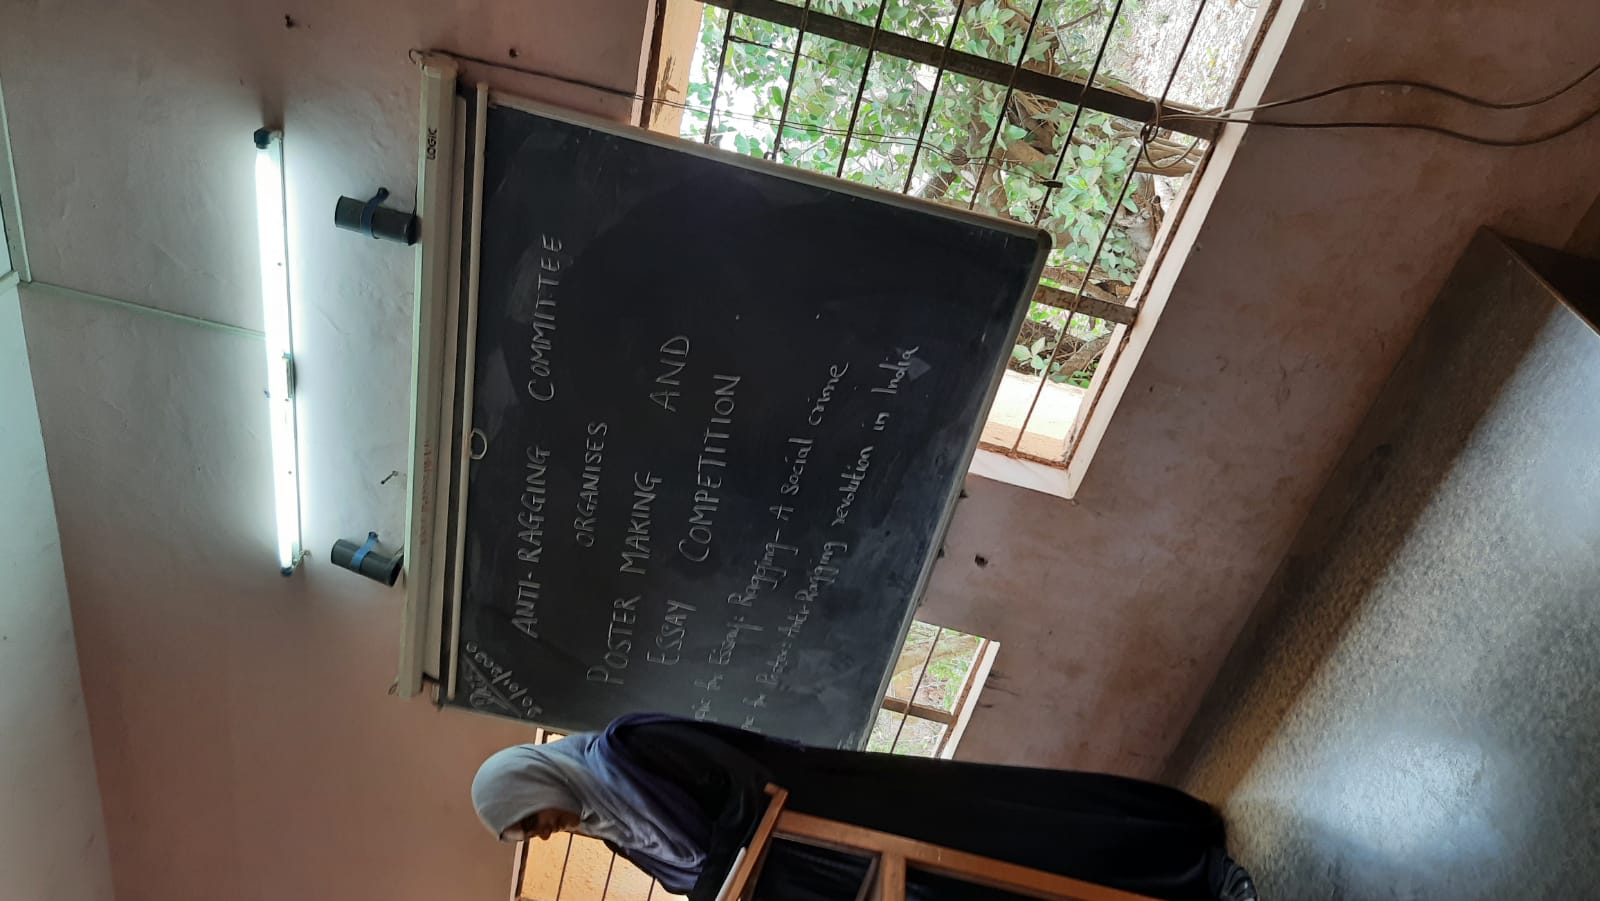 LOGIC
20/01/2020
ANTI-RAGGING COMMITTEE
ORGANISES
POSTER MAKING AND
ESSAY COMPETITION
for Essay: Ragging- A social crime
for Poster: Anti-Ragging revolution in India